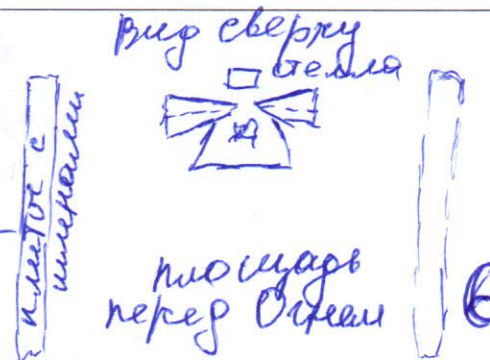 Вид сверху
стелла
плитос с
именами
площадь
перед Огнем
6